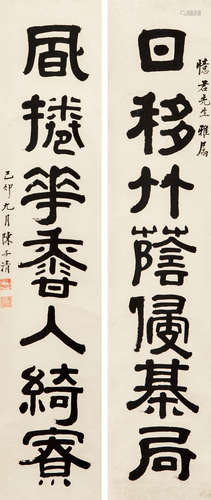 憶君先生雅屬
日移竹蔭侵棊局
風捲華香入綺寮
己卯九月陳子清